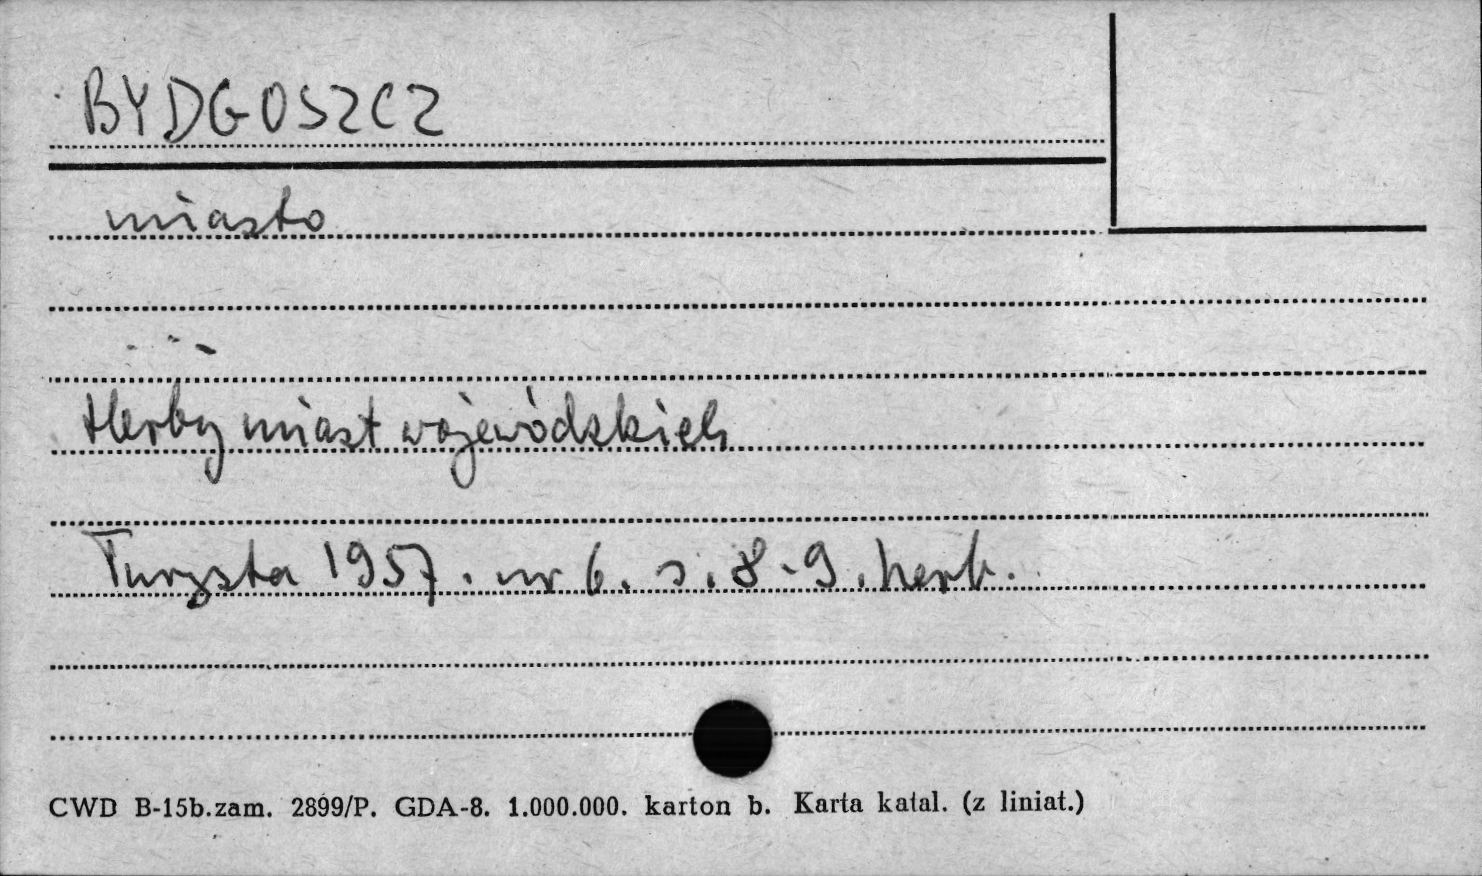 BYDGOSZCZ
miasto
Herby miast wojewódzkich
Turysta 1957. nr 6. s. 8-9. herb.
CWD B-15b.zam. 2899/P. GDA-8. 1.000.000. karton b. Karta katal. (z liniat.)